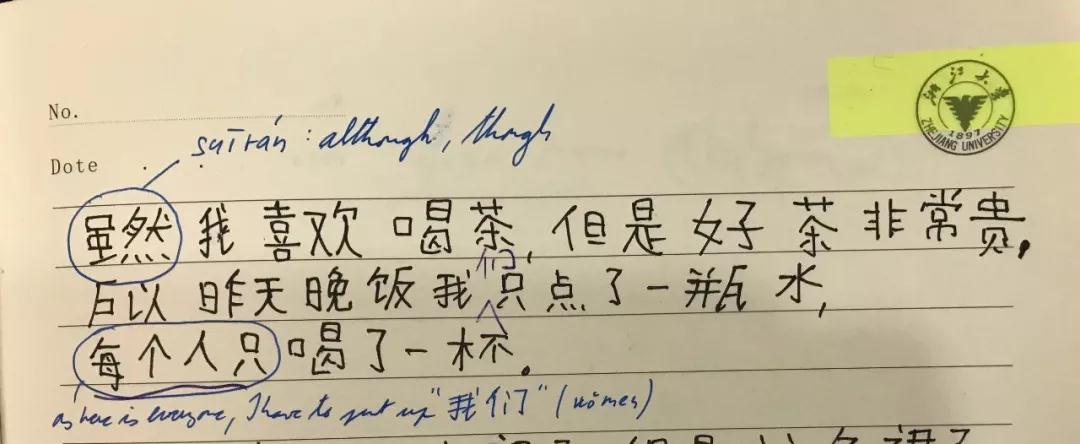 No.
suīrán : although, though
Date
浙江大学
ZHEJIANG UNIVERSITY
1897
虽然我喜欢喝茶,但是好茶非常贵,
们
所以昨天晚饭我只点了一瓶水,
每个人只喝了一杯.
as here is everyone, I have to put up "我们" (wǒmen)